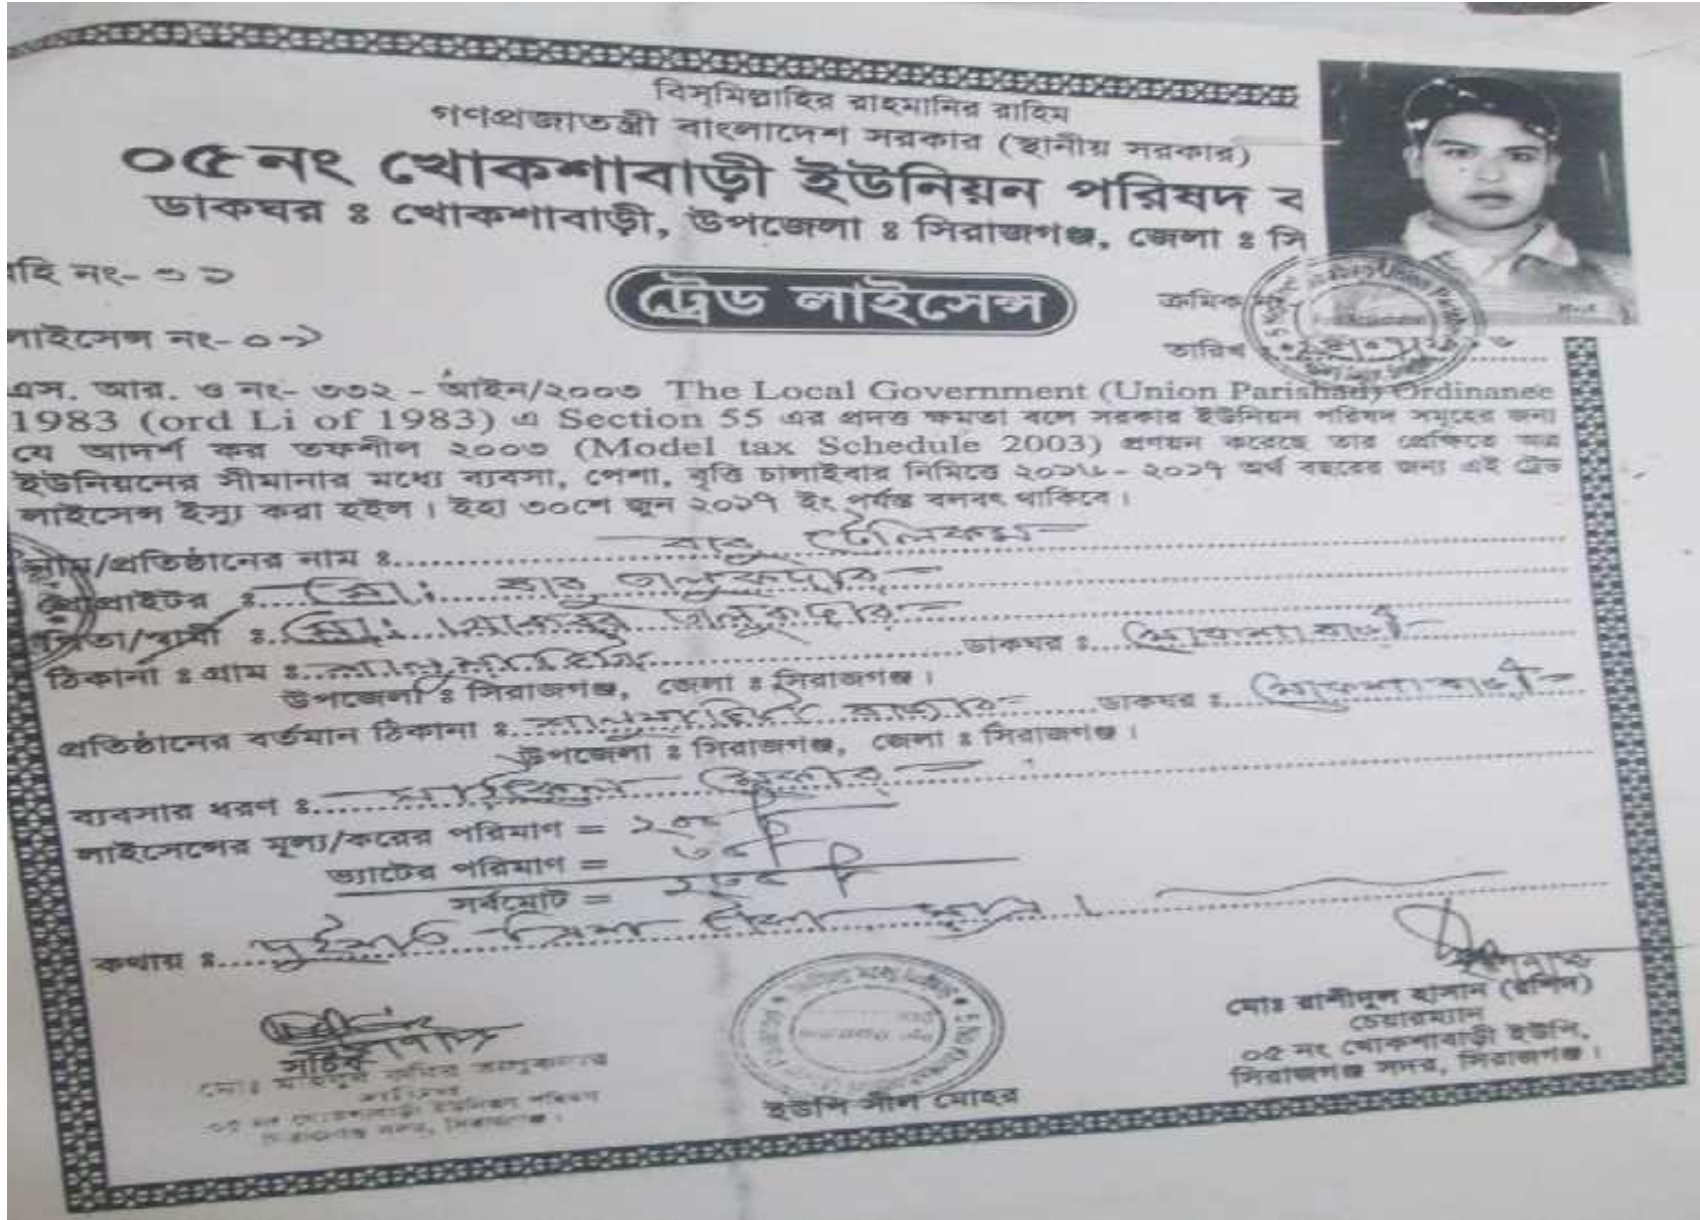 বিস্‌মিল্লাহির রাহমানির রাহিম
গণপ্রজাতন্ত্রী বাংলাদেশ সরকার (স্থানীয় সরকার)
০৫নং খোকশাবাড়ী ইউনিয়ন পরিষদ ব
ডাকঘর ঃ খোকশাবাড়ী, উপজেলা ঃ সিরাজগঞ্জ, জেলা ঃ সি
হি নং- ৩১
ট্রেড লাইসেন্স
ক্রমিক নং-
লাইসেন্স নং- ০১
তারিখ ঃ
এস. আর. ও নং- ৩৩২ - আইন/২০০৩ The Local Government (Union Parishad) Ordinanee
1983 (ord Li of 1983) এ Section 55 এর প্রদত্ত ক্ষমতা বলে সরকার ইউনিয়ন পরিষদ সমূহের জন্য
যে আদর্শ কর তফশীল ২০০৩ (Model tax Schedule 2003) প্রণয়ন করেছে তার প্রেক্ষিতে অত্র
ইউনিয়নের সীমানার মধ্যে ব্যবসা, পেশা, বৃত্তি চালাইবার নিমিত্তে ২০১৬ - ২০১৭ অর্থ বছরের জন্য এই ট্রেড
লাইসেন্স ইস্যু করা হইল। ইহা ৩০শে জুন ২০১৭ ইং পর্যন্ত বলবৎ থাকিবে।
নাম/প্রতিষ্ঠানের নাম ঃ বাবু টেলিকম
প্রোপ্রাইটর ঃ মোঃ বাবু তালুকদার
পিতা/স্বামী ঃ মোঃ তালুকদার
ঠিকানা ঃ গ্রাম ঃ ডাকঘর ঃ খোকশাবাড়ী
উপজেলা ঃ সিরাজগঞ্জ, জেলা ঃ সিরাজগঞ্জ।
প্রতিষ্ঠানের বর্তমান ঠিকানা ঃ বাজার ডাকঘর ঃ খোকশাবাড়ী
উপজেলা ঃ সিরাজগঞ্জ, জেলা ঃ সিরাজগঞ্জ।
ব্যবসার ধরণ ঃ
লাইসেন্সের মূল্য/করের পরিমাণ = ২০০
ভ্যাটের পরিমাণ = ৩০
সর্বমোট = ২৩০
কথায় ঃ দুইশত ত্রিশ টাকা মাত্র।
সচিব
ইউপি সীল মোহর
মোঃ রাশীদুল হাসান (রশিদ)
চেয়ারম্যান
০৫ নং খোকশাবাড়ী ইউপি,
সিরাজগঞ্জ সদর, সিরাজগঞ্জ।